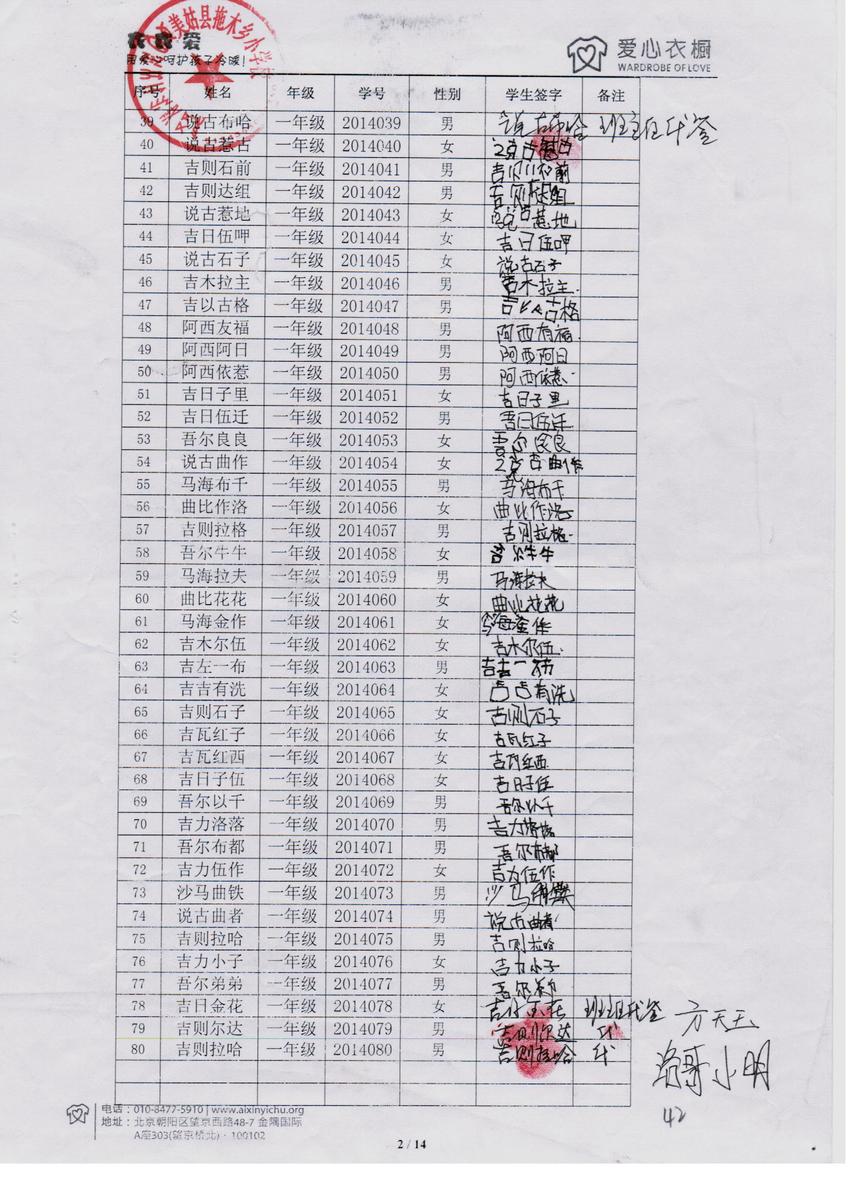 美姑县拖木乡小学
衣衣爱
用爱心呵护孩子冷暖!
爱心衣橱
WARDROBE OF LOVE
序号 姓名 年级 学号 性别 学生签字 备注
39 说古布哈 一年级 2014039 男 说古布哈 班主任代签
40 说古惹古 一年级 2014040 女 说古惹古
41 吉则石前 一年级 2014041 男 吉则石前
42 吉则达组 一年级 2014042 男 吉则达组
43 说古惹地 一年级 2014043 女 说古惹地
44 吉日伍呷 一年级 2014044 女 吉日伍呷
45 说古石子 一年级 2014045 女 说古石子
46 吉木拉主 一年级 2014046 男 吉木拉主
47 吉以古格 一年级 2014047 男 吉以古格
48 阿西友福 一年级 2014048 男 阿西有福
49 阿西阿日 一年级 2014049 男 阿西阿日
50 阿西依惹 一年级 2014050 男 阿西依惹
51 吉日子里 一年级 2014051 女 吉日子里
52 吉日伍迁 一年级 2014052 男 吉日伍迁
53 吾尔良良 一年级 2014053 女 吾尔良良
54 说古曲作 一年级 2014054 女 说古曲作
55 马海布千 一年级 2014055 男 马海布千
56 曲比作洛 一年级 2014056 女 曲比作洛
57 吉则拉格 一年级 2014057 男 吉则拉格
58 吾尔牛牛 一年级 2014058 女 吾尔牛牛
59 马海拉夫 一年级 2014059 男 马海拉夫
60 曲比花花 一年级 2014060 女 曲比花花
61 马海金作 一年级 2014061 女 马海金作
62 吉木尔伍 一年级 2014062 女 吉木尔伍
63 吉左一布 一年级 2014063 男 吉左一布
64 吉吉有洗 一年级 2014064 女 吉吉有洗
65 吉则石子 一年级 2014065 女 吉则石子
66 吉瓦红子 一年级 2014066 女 吉瓦红子
67 吉瓦红西 一年级 2014067 女 吉瓦红西
68 吉日子伍 一年级 2014068 女 吉日子伍
69 吾尔以千 一年级 2014069 男 吾尔以千
70 吉力洛落 一年级 2014070 男 吉力洛落
71 吾尔布都 一年级 2014071 男 吾尔布都
72 吉力伍作 一年级 2014072 女 吉力伍作
73 沙马曲铁 一年级 2014073 男 沙马曲铁
74 说古曲者 一年级 2014074 男 说古曲者
75 吉则拉哈 一年级 2014075 男 吉则拉哈
76 吉力小子 一年级 2014076 女 吉力小子
77 吾尔弟弟 一年级 2014077 男 吾尔弟弟
78 吉日金花 一年级 2014078 女 吉日金花 班主任代签 方天玉
79 吉则尔达 一年级 2014079 男 吉则尔达 代
80 吉则拉哈 一年级 2014080 男 吉则拉哈 代
哥小明
42
电话:010-8477-5910 | www.aixinyichu.org
地址:北京朝阳区望京西路48-7 金隅国际
A座303(望京桥北)·100102
2 / 14